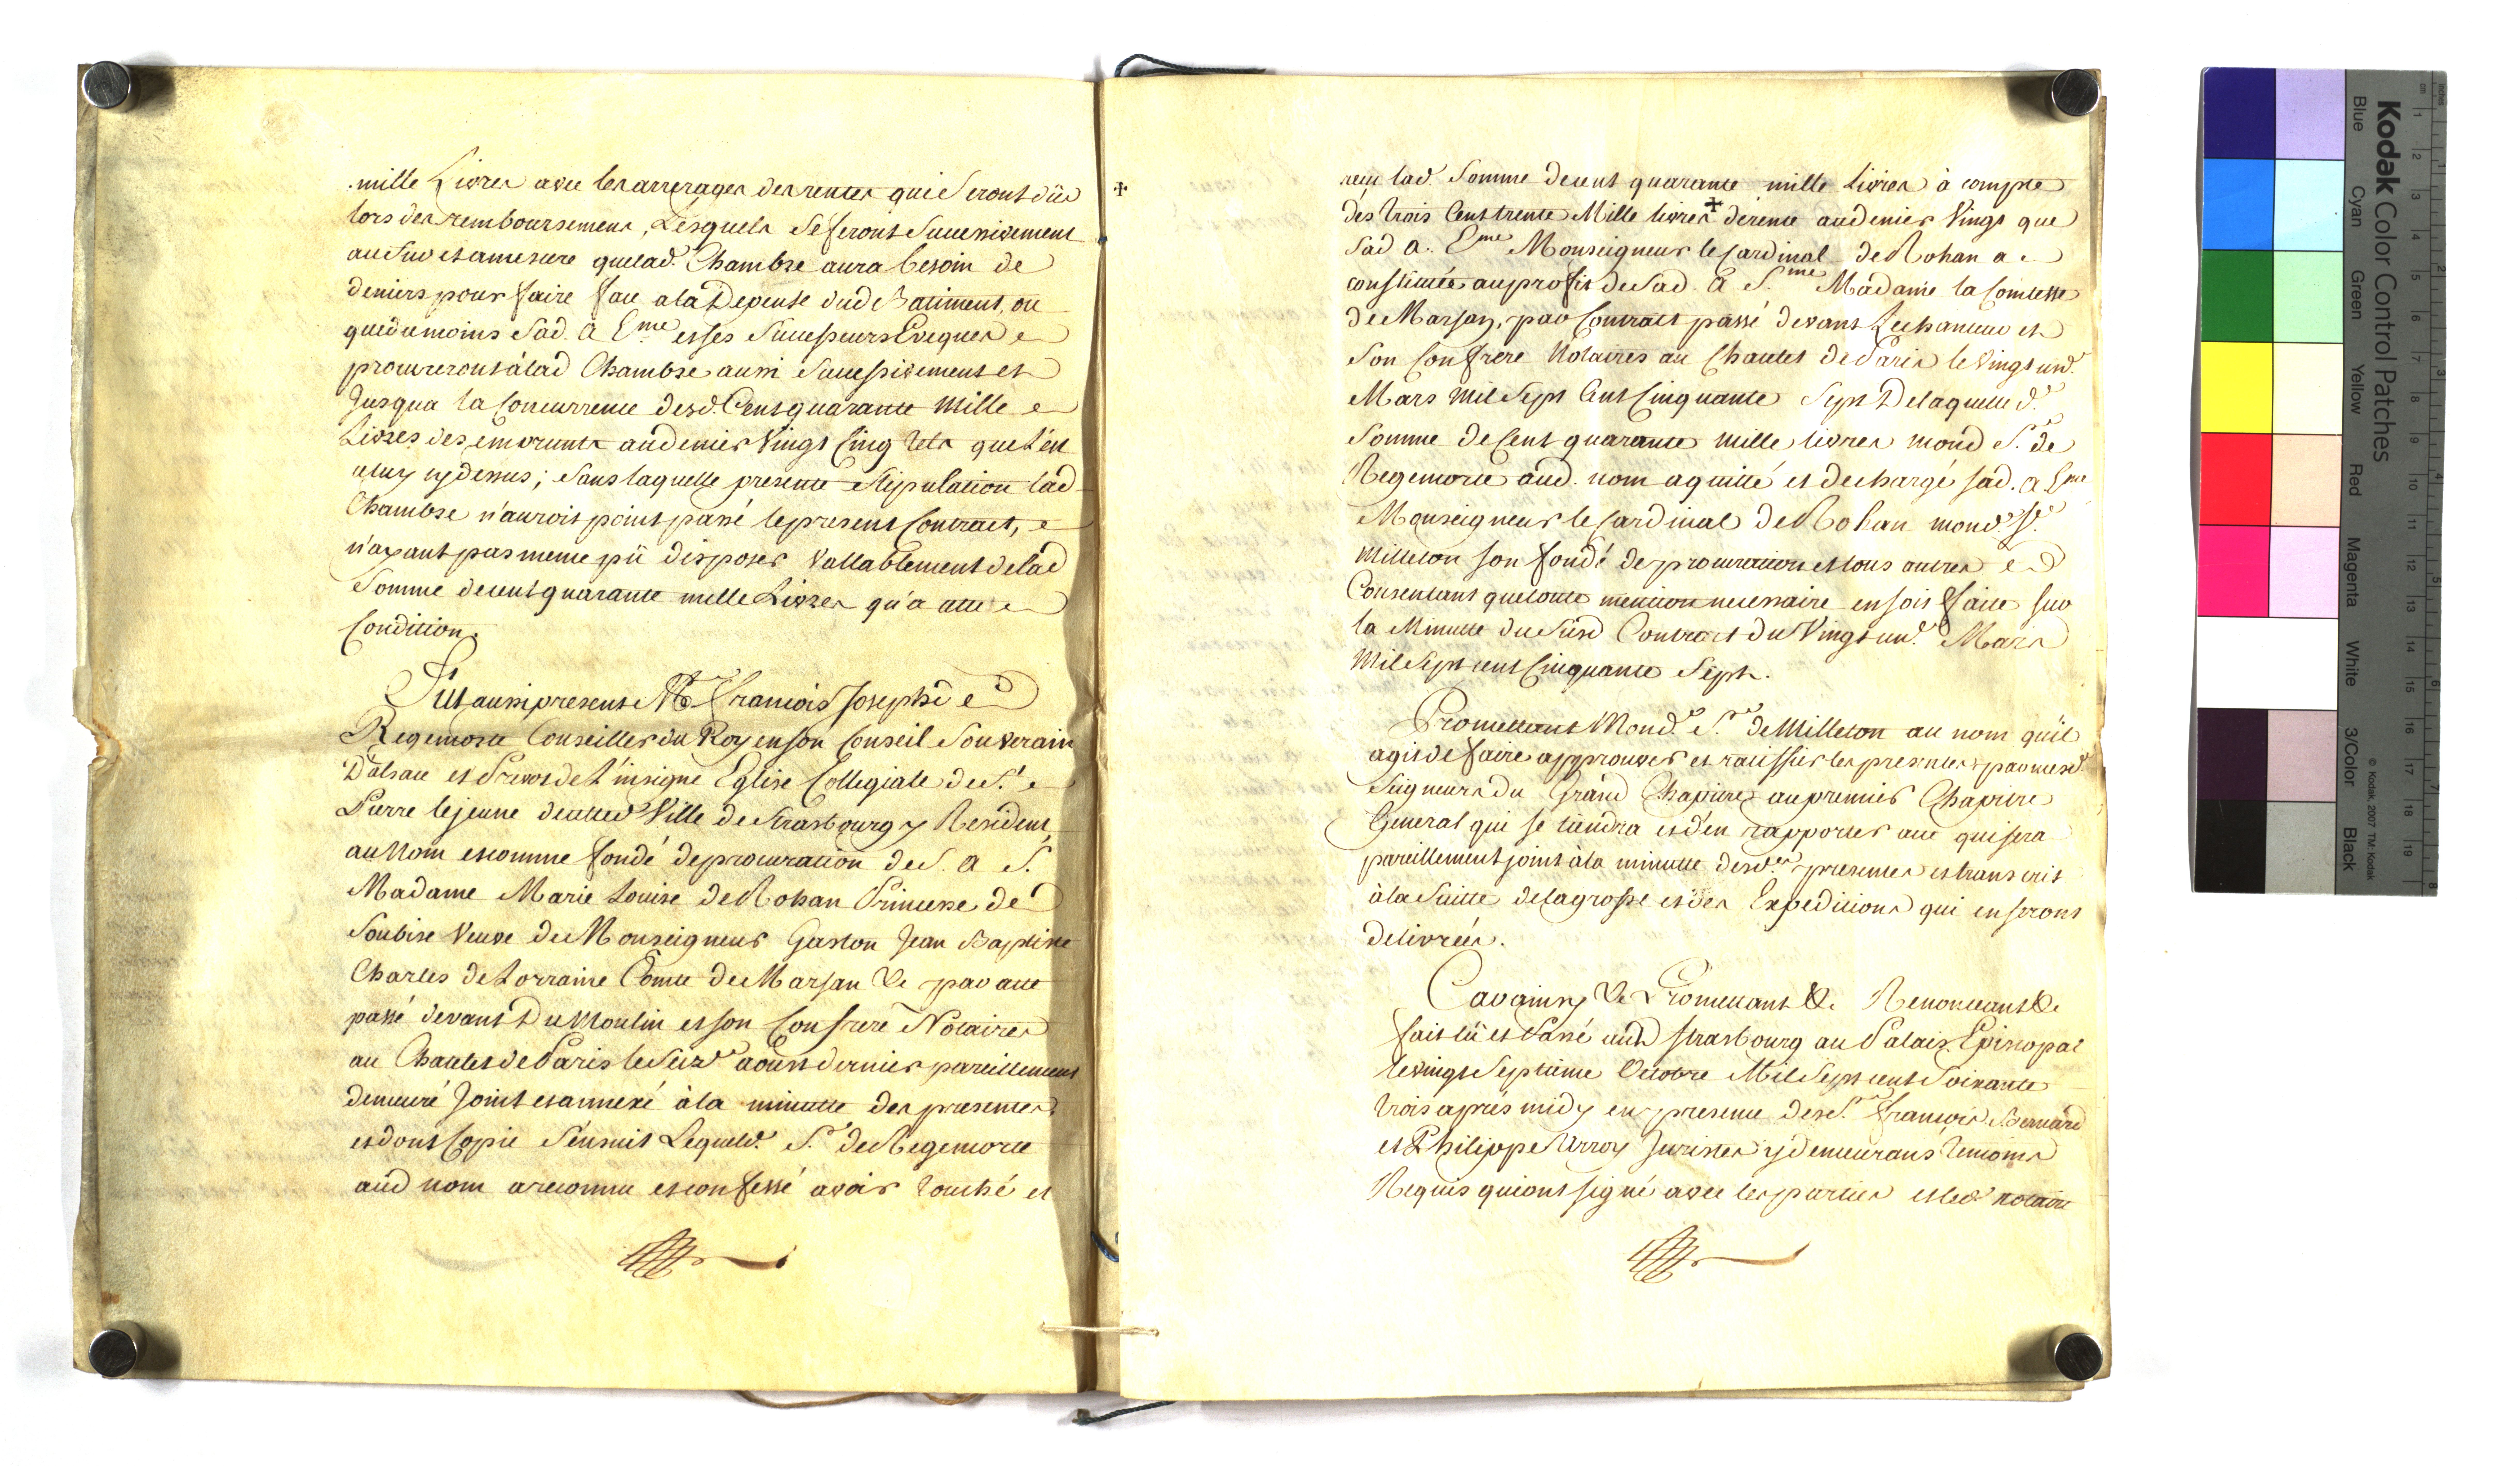 mille Livres avec les arrerages des rentes qui seront dûs
lors des remboursemens, Lesquels se feront Successivement
au fur et amesure quelad. Chambre aura besoin de
deniers pour faire face ala Depense dud Batiment, ou
quedumoins Sad. A Eme. et ses Successeurs Eveques
procureront à lad Chambre aussi Successivement et
Jusqua la Concurrence desd. Cent quarante Mille
Livres des emprunts au denier Vingt Cinq tels quel'en
celuy cy dessus; Sans laquelle presente Stipulation lad
Chambre n'auroit point passé lepresent Contract,
n'ayant pas meme pû disposer Vallablement delad
Somme decent quarante mille Livres qu'a cette
Condition.
Fut aussi present Mre. Francois Joseph de
Regemorte Conseiller du Roy enson Conseil Souverain
D'alsace et Prevot de L'insigne Eglise Collegiale de St.
Pierre lejeune decetted Ville de Strasbourg y Resident
au Nom et comme fondé deprocuration de S. A S.
Madame Marie Louise de Rohan Princesse de
Soubise Veuve de Monseigneur Gaston Jean Baptiste
Charles de Lorraine Comte de Marsan &c par acte
passé devant Du Moulin et son Confrere Notaires
au Chatelet de Paris le Seize aoust dernier pareillement
demeuré Joint et annexé à la minutte des presentes
et dont Copie S'ensuit Lequeld. Sr. de Regemorte
aud nom areconnu et confessé avoir touché et
+
reçu lad. Somme decent quarante mille Livres à compte
des trois Cent trente Mille livres + derente audenier Vingt que
Sad A. Eme Monseigneur le Cardinal de Rohan a
constituée auprofit de Sad. A S.me Madame la Comtesse
de Marsan, par Contract passé devant Lechanteur et
Son Confrere Notaires au Chatelet de Paris le Vingt un.
Mars Mil Sept Cent Cinquante Sept De laquelle d.
Somme de Cent quarante mille livres mond Sr. de
Regemorte aud. nom aquitté et dechargé sad. A Eme
Monseigneur le Cardinal de Rohan mond. Sr.
Milleton son fondé de procuration et tous autres
Consentant que toute mention necessaire en soit faite sur
la Minutte du Susd Contract du Vingt un. Mars
Mil Sept cent Cinquante Sept.
Promettant Mond. Sr. de Milleton au nom qu'il
agit de faire approuver et ratiffier les presentes par mesd
Seigneurs du Grand Chapitre au premier Chapitre
General qui se tiendra et d'en rapporter acte qui sera
pareillement joint à la minutte desd. presentes et transcrit
à la Suitte de la grosse et des Expeditions qui en seront
delivrées.
Car ainsy &c Promettant &c. Renonceant &c
fait lû et Passé aud Strasbourg au Palais Episcopal
le vingt Septieme Octobre Mil Sept cent Soixante
trois aprés midy en presence des Srs. Francois Bernard
et Philippe Arroy Juristes y demeurans temoins
Requis qui ont signé avec les parties et led notaire